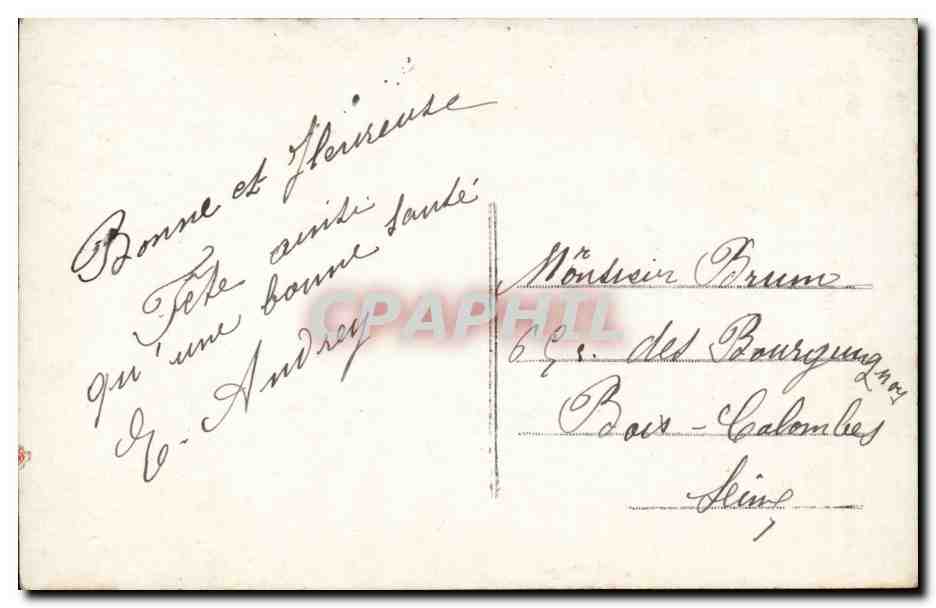 Bonne et Heureuse
Fête ainsi
qu'une bonne santé
E. Andrey
Monsieur Brum
6 des Bourguignons
Bois-Colombes
Seine
CPAPHIL